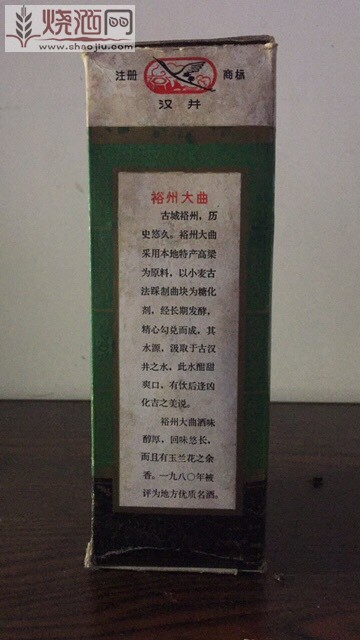 烧酒网
www.shaojiu.com
注册 商标
汉井
裕州大曲
古城裕州，历
史悠久。裕州大曲
采用本地特产高梁
为原料，以小麦古
法踩制曲块为糖化
剂，经长期发酵，
精心勾兑而成，其
水源，汲取于古汉
井之水，此水酣甜
爽口，有饮后逢凶
化吉之美说。
裕州大曲酒味
醇厚，回味悠长，
而且有玉兰花之余
香。一九八〇年被
评为地方优质名酒。